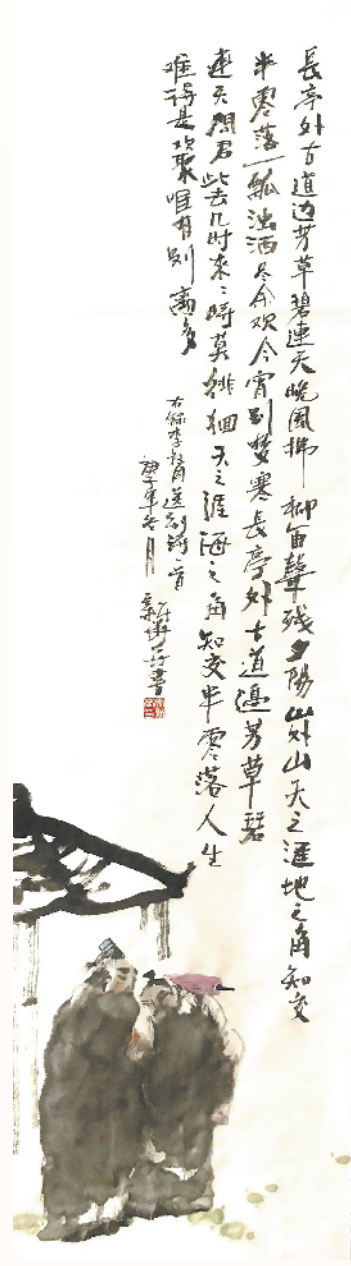 長亭外古道边芳草碧連天晚風拂柳笛聲残夕陽山外山天之涯地之角知交
半零落一瓢浊酒尽余欢今宵别梦寒長亭外古道邊芳草碧
連天問君此去几时来來時莫徘徊天之涯海之角知交半零落人生
难得是欢聚唯有别離多
右録李叔同送别詩一首
庚子年冬月
書